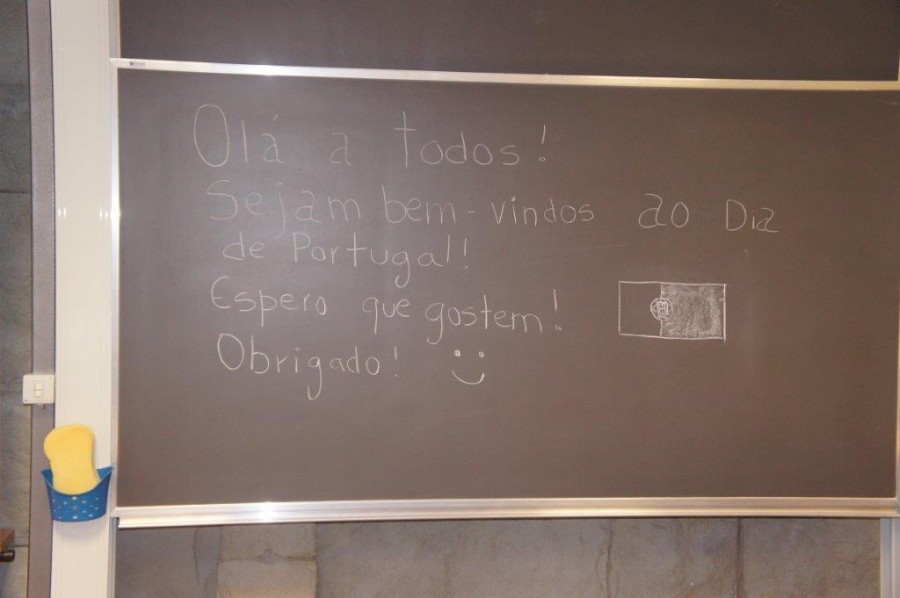 Olá a todos!
Sejam bem-vindos ao Dia
de Portugal!
Espero que gostem!
Obrigado!